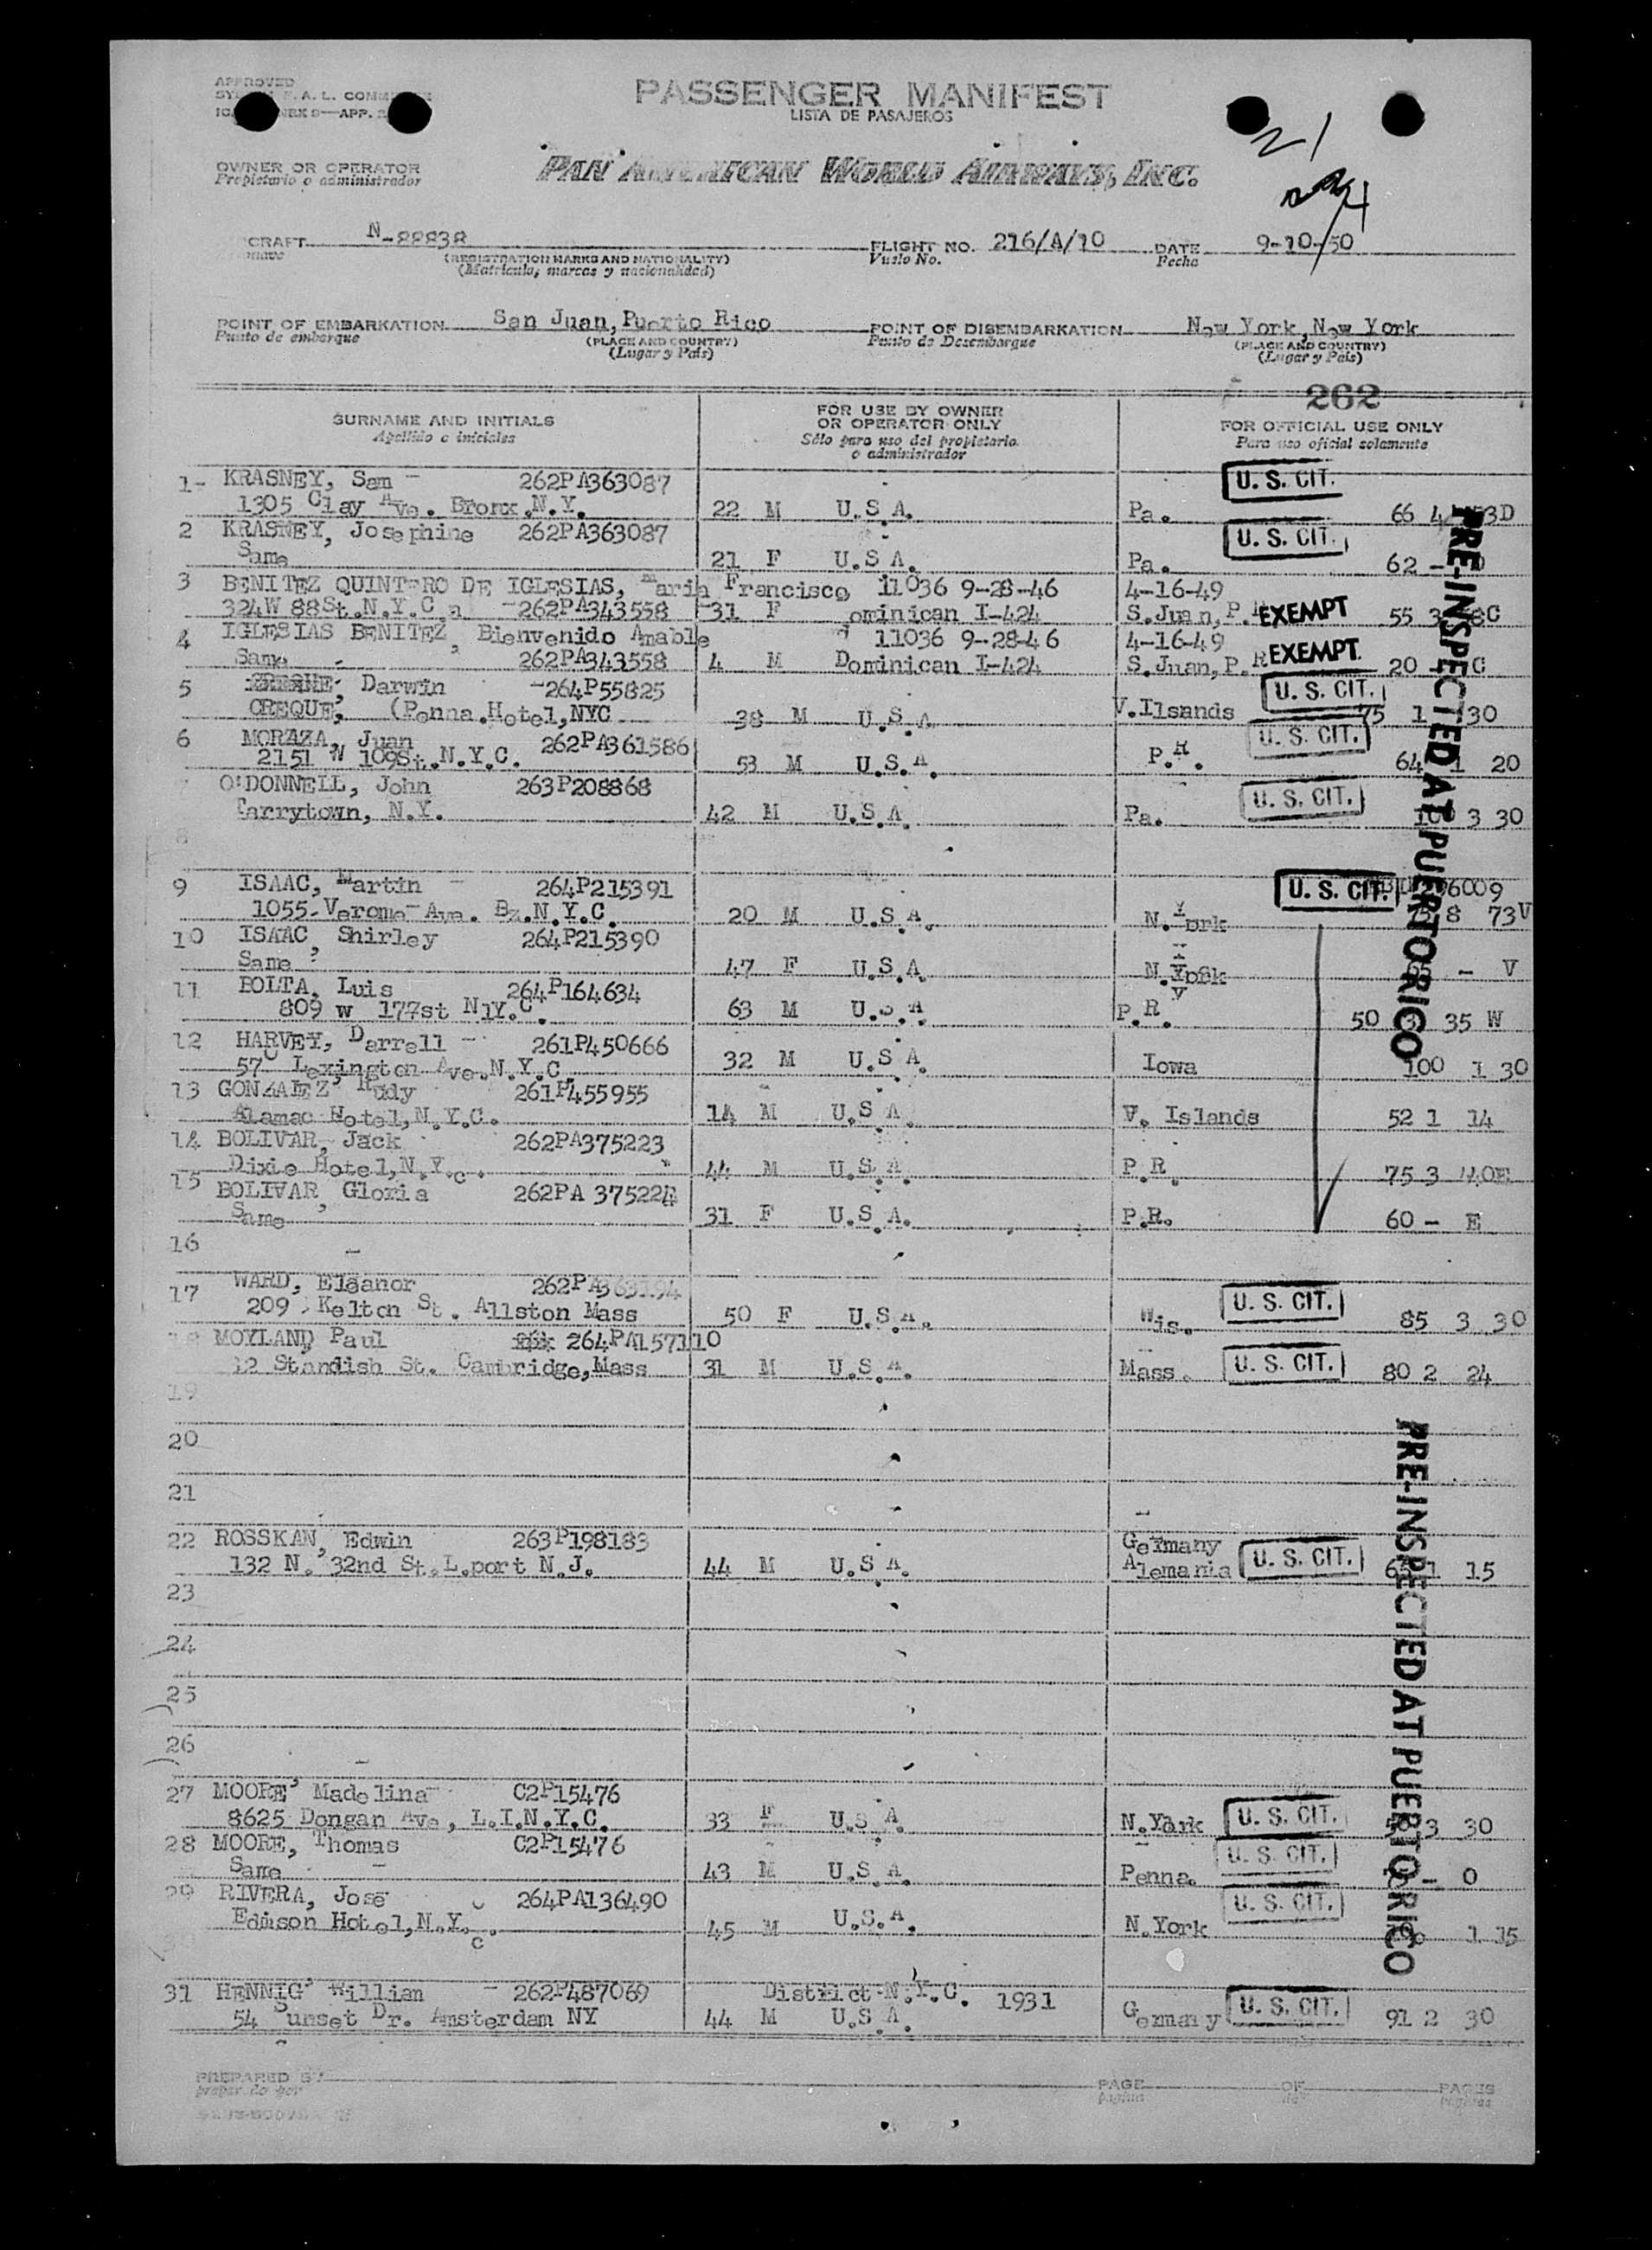 APPROVED
PASSENGER MANIFEST
LISTA DE PASAJEROS
OWNER OR OPERATOR
Propietario o administrador
PAN AMERICAN WORLD AIRWAYS, INC.
21
CRAFT N-88838 FLIGHT NO. 216/A/10 DATE 9-10-50
(REGISTRATION MARKS AND NATIONALITY) Vuelo No. Fecha
(Matricula, marcas y nacionalidad)
POINT OF EMBARKATION San Juan, Puerto Rico POINT OF DISEMBARKATION New York, New York
Punto de embarque (PLACE AND COUNTRY) Punto de Desembarque (PLACE AND COUNTRY)
(Lugar y País) (Lugar y País)
262
SURNAME AND INITIALS FOR USE BY OWNER OR OPERATOR ONLY FOR OFFICIAL USE ONLY
Apellido o iniciales Sólo para uso del propietario o administrador Para uso oficial solamente
1- KRASNEY, Sam - 262PA363087 U. S. CIT.
1305 Clay Ave. Bronx.N.Y. 22 M U.S.A. Pa. 66
2 KRASNEY, Josephine 262PA363087 U. S. CIT.
Same 21 F U.S.A. Pa. 62 -
3 BENITEZ QUINTERO DE IGLESIAS, Maria Francisco 11036 9-28-46 4-16-49
324W 88St.N.Y.C. -262PA343558 31 F ominican I-424 S.Juan, P. EXEMPT 55
4 IGLESIAS BENITEZ, Bienvenido Amable 11036 9-28-46 4-16-49
Same - 262PA343558 4 M Dominican I-424 S.Juan, P.R EXEMPT 20
5 Darwin -264P55825 U. S. CIT.
CREQUE, (Penna.Hotel,NYC 38 M U.S.A. V.Ilsands 75 1 30
6 MORAZA, Juan 262PA361586 U. S. CIT.
2151 W 109St.N.Y.C. 53 M U.S.A. P.R. 64 1 20
O'DONNELL, John 263P208868 U. S. CIT.
Tarrytown, N.Y. 42 M U.S.A. Pa. 3 30
8
9 ISAAC, Martin - 264P215391 U. S. CIT. 6009
1055-Verome-Ave. Bx.N.Y.C. 20 M U.S.A. N. York 8 73V
10 ISAAC, Shirley 264P215390
Same 47 F U.S.A. N.York - V
11 BOLTA, Luis 264P164634
809 w 177st N1Y.C. 63 M U.S.A. P.R. 50 35 W
12 HARVEY, Darrell - 261P450666
57 Lexington Ave.N.Y.C. 32 M U.S.A. Iowa 100 1 30
13 GONZALEZ, Rudy 261P455955
Alamac Hotel,N.Y.C. 14 M U.S.A. V. Islands 52 1 14
14 BOLIVAR, Jack 262PA375223
Dixie Hotel,N.Y.C. 44 M U.S.A. P.R. 75 3 40E
15 BOLIVAR, Gloria 262PA 375224
Same 31 F U.S.A. P.R. 60 - E
16
17 WARD, Eleanor 262PA363194
209 Kelton St. Allston Mass 50 F U.S.A. Wis. U. S. CIT. 85 3 30
18 MOYLAND, Paul 264PA157110
12 Standish St. Cambridge,Mass 31 M U.S.A. Mass. U. S. CIT. 80 2 24
19
20
21
22 ROSSKAN, Edwin 263P198183 Germany
132 N. 32nd St.L.port N.J. 44 M U.S.A. Alemania U. S. CIT. 1 15
23
24
25
26
27 MOORE, Madelina C2P15476
8625 Dongan Ave, L.I.N.Y.C. 33 F U.S.A. N.York U. S. CIT. 3 30
28 MOORE, Thomas C2P15476 U. S. CIT.
Same 43 M U.S.A. Penna. - 0
29 RIVERA, Jose 264PA136490 U. S. CIT.
Edison Hotel,N.Y.C. 45 M U.S.A. N.York 1 15
31 HENNIG, Willian - 262P487069 District-N.Y.C. 1931
54 Sunset Dr. Amsterdam NY 44 M U.S.A. Germany U. S. CIT. 91 2 30
PRE-INSPECTED AT PUERTO RICO
PRE-INSPECTED AT PUERTO RICO
PREPARED BY PAGE OF PAGES